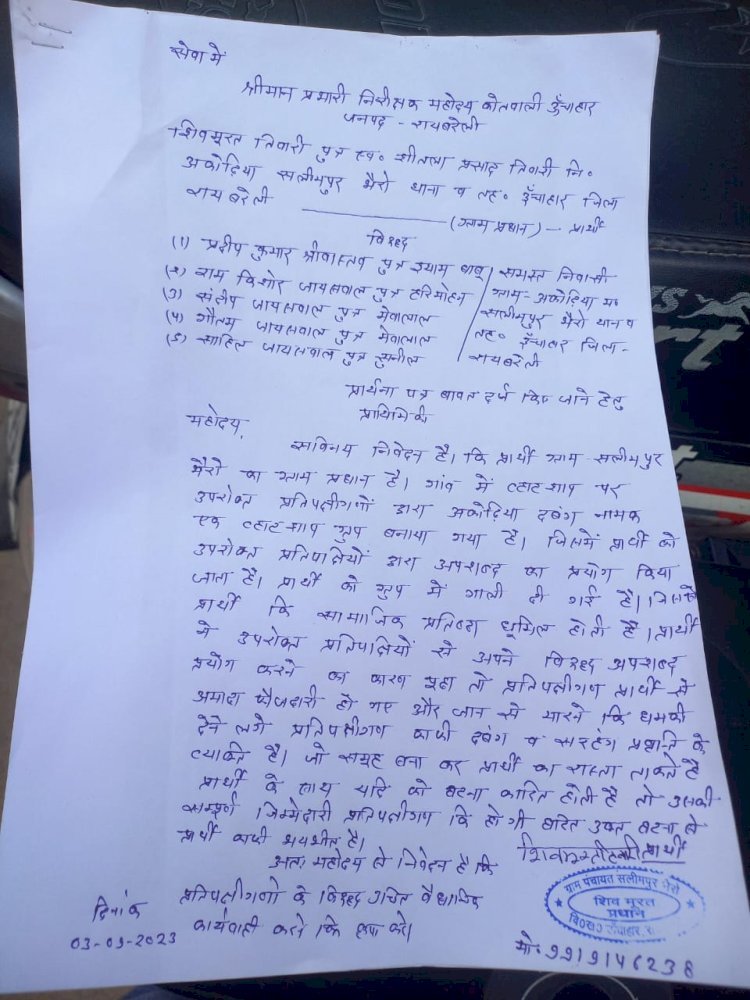 सेवा में
श्रीमान प्रभारी निरीक्षक महोदय कोतवाली ऊँचाहार
जनपद - रायबरेली
शिवमूरत तिवारी पुत्र स्व० शीतला प्रसाद तिवारी नि०
अकोढ़िया सलीमपुर भैरो थाना व तह० ऊँचाहार जिला
रायबरेली (ग्राम प्रधान) - प्रार्थी
विरुद्द
(1) प्रदीप कुमार श्रीवास्तव पुत्र श्याम बाबू समस्त निवासी
(2) राम किशोर जायसवाल पुत्र हरिमोहन ग्राम-अकोढिया म०
(3) संदीप जायसवाल पुत्र मेवालाल सलीमपुर भैरो थाना व
(4) गौतम जायसवाल पुत्र मेवालाल तह० ऊँचाहार जिला-
(5) साहिल जायसवाल पुत्र सुनील रायबरेली
प्रार्थना पत्र बावत दर्ज किए जाने हेतु
प्राथिमिकी
महोदय,
सविनय निवेदन है। कि प्रार्थी ग्राम-सलीमपुर
भैरो का ग्राम प्रधान है। गांव में व्हाट्शाप पर
उपरोक्त प्रतिपक्षीगणों द्वारा अकोढ़िया दबंग नामक
एक व्हाट्शाप ग्रुप बनाया गया है। जिसमें प्रार्थी को
उपरोक्त प्रतिपक्षियों द्वारा अपशब्द का प्रयोग किया
जाता है। प्रार्थी को ग्रुप में गाली दी गई है। जिससे
प्रार्थी कि सामाजिक प्रतिष्ठा धूमिल होती है। प्रार्थी
ने उपरोक्त प्रतिपक्षियों से अपने विरुद्द अपशब्द
प्रयोग करने का कारण पूछा तो प्रतिपक्षीगण प्रार्थी से
अमादा फौजदारी हो गए और जान से मारने कि धमकी
देने लगे प्रतिपक्षीगण काफी दबंग व सरहंग प्रवृत्ति के
व्यक्ति है। जो समूह बना कर प्रार्थी का रास्ता ताकते है
प्रार्थी के साथ यदि को घटना कारित होती है तो उसकी
सम्पूर्ण जिम्मेदारी प्रतिपक्षीगण कि होगी घटित उक्त घटना से
प्रार्थी काफी भयभीत है।
प्रार्थी
अतः महोदय से निवेदन है कि
प्रतिपक्षीगणों के विरुद्द उचित वैधानिक
कार्यवाही करने कि कृपा करे।
दिनांक
03-09-2023
ग्राम पंचायत सलीमपुर भैरो
शिव मूरत
प्रधान
वि०ख० ऊँचाहार, रा
मो० 9919146238